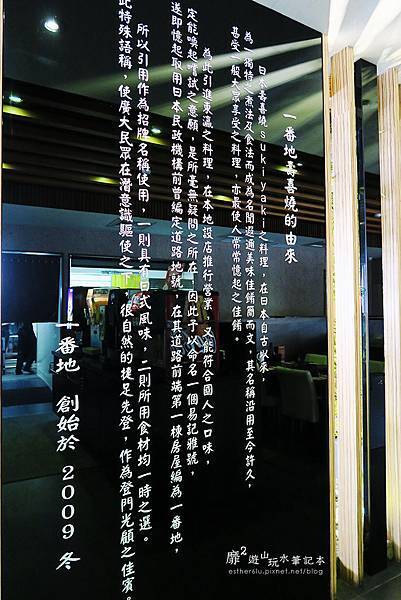 一番地壽喜燒的由來
日本壽喜燒sukiyaki之料理，在日本自古以來，
為一獨特之煮法及食法而成為名聞遐邇美味佳餚簡而文，其名稱沿用至今許久，
甚受一般大眾享受之料理，亦最使人常常憶起之佳餚。
為此引進東瀛之料理，在本地設店推行營業，又能符合國人之口味，
定能喚起嚐試之意願，是所毫無疑問之所在，因此予以命名一個易記雅號，
送即憶起取用日本民政機構前曾編定道路地號，在其道路前端第一棟房屋編為一番地，
所以引用作為招牌名稱使用，一則具有日式風味，二則所用食材均一時之選。
此特殊語稱，使廣大民眾在潛意識驅使之下，很自然的捷足先登，作為登門光顧之佳賓。
一番地 創始於2009冬
靡²遊山玩水筆記本
esther6lu.pixnet.net/blog